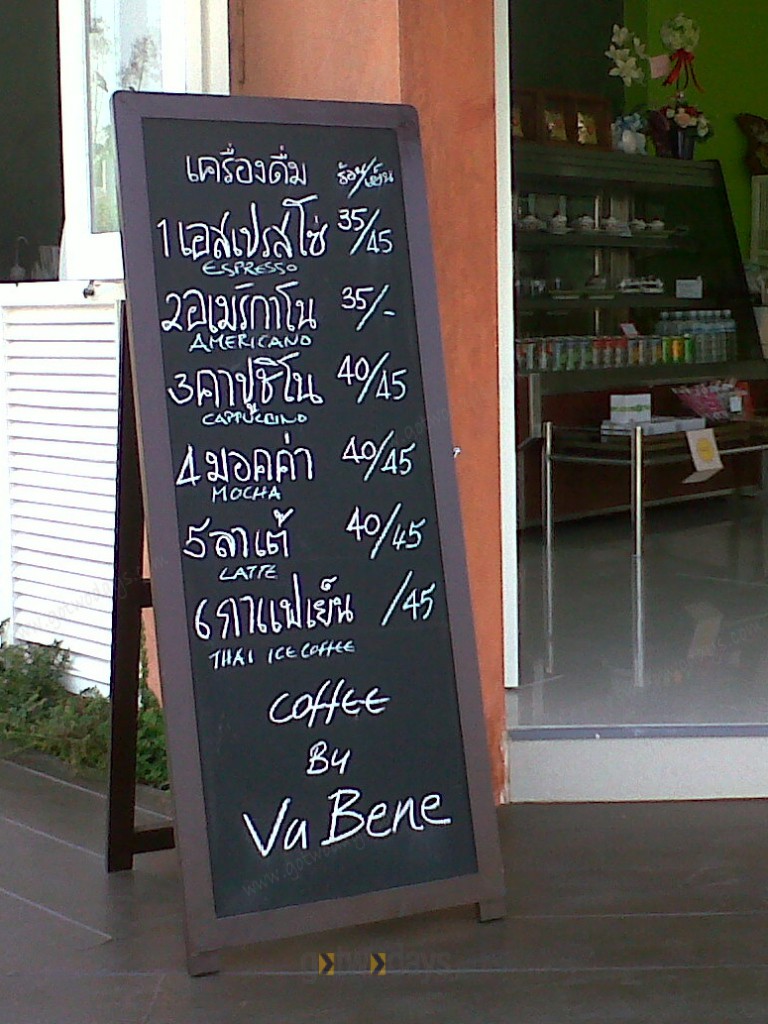 เครื่องดื่ม ร้อน/เย็น
1 เอสเปรสโซ่ 35/45
ESPRESSO
2 อเมริกาโน 35/-
AMERICANO
3 คาปูชิโน 40/45
CAPPUCCINO
4 มอคค่า 40/45
MOCHA
5 ลาเต้ 40/45
LATTE
6 กาแฟเย็น /45
THAI ICE COFFEE
COFFEE
By
Va Bene
gotwodays